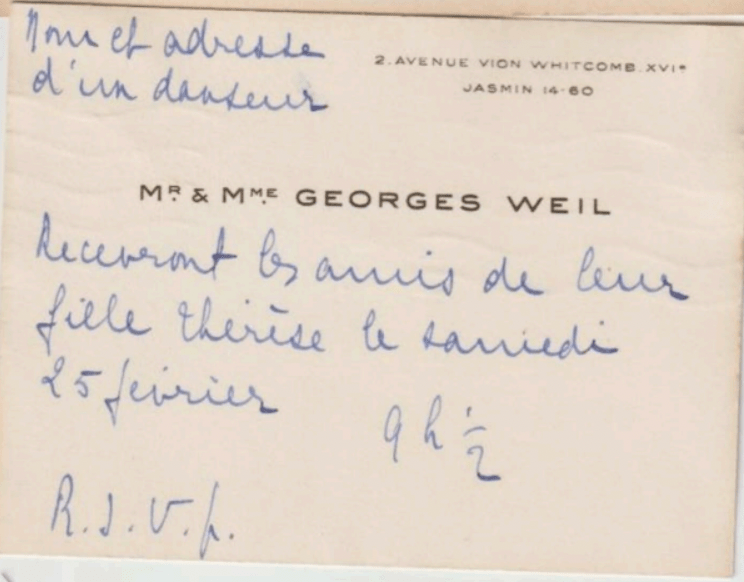 Nom et adresse
d'un danseur
2. AVENUE VION WHITCOMB. XVIᵉ
JASMIN 14-60
Mᴿ. & Mᴹᴱ. GEORGES WEIL
Recevront les amis de leur
fille Thérèse le samedi
25 février
9 h ½
R.S.V.p.